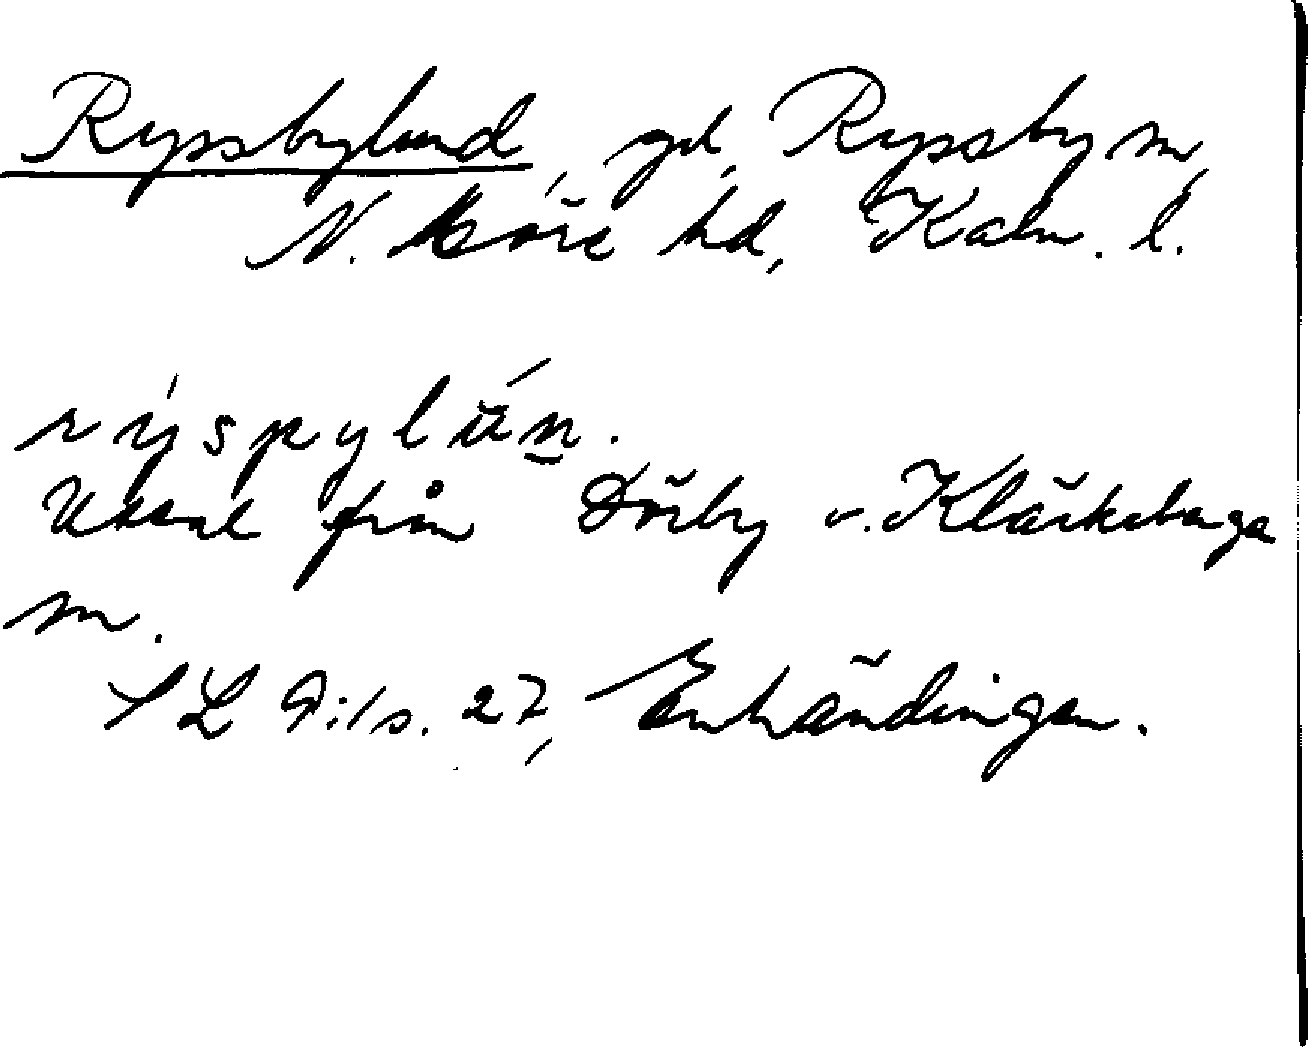 Ryssbylund, gd, Ryssby sn,
N. Möre hd, Kalm. l.
rýspylún.
Uttal från Dörby o. Kläckeberga
sn.
SL Bil s. 27, Enhändingen.